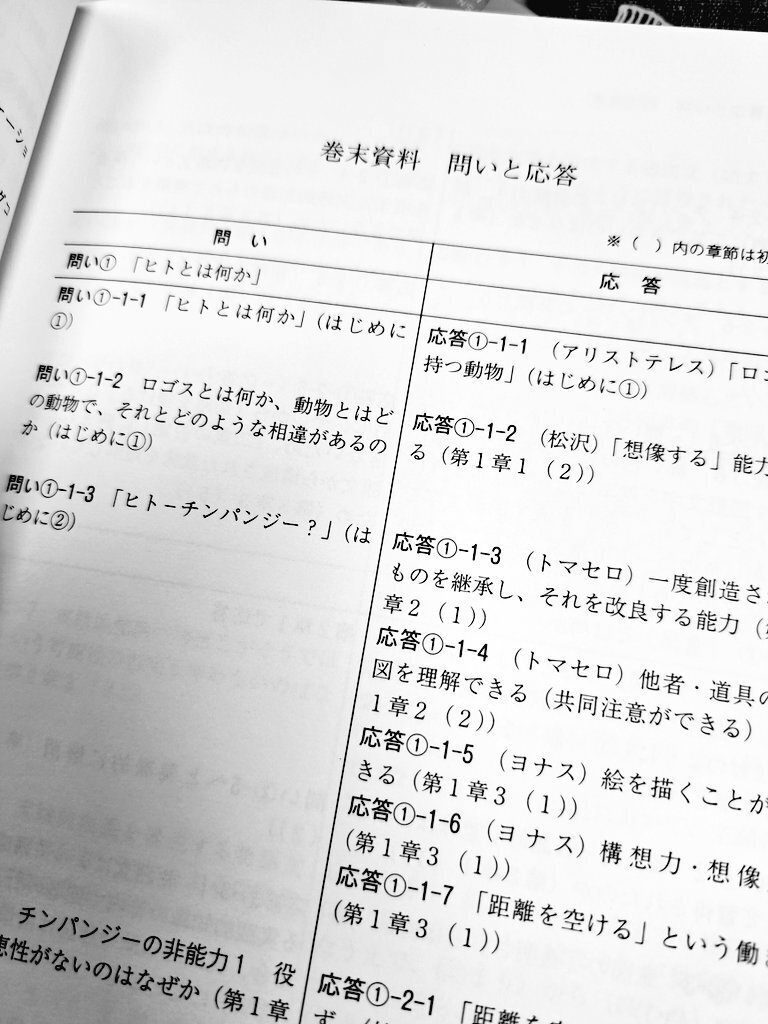 巻末資料　問いと応答
※（　）内の章節は初
問　い
問い① 「ヒトとは何か」
問い①-1-1　「ヒトとは何か」（はじめに
①）
問い①-1-2　ロゴスとは何か、動物とはど
の動物で、それとどのような相違があるの
か（はじめに①）
問い①-1-3　「ヒト－チンパンジー？」（は
じめに②）
チンパンジーの非能力1　役
恵性がないのはなぜか（第1章
応　答
応答①-1-1　（アリストテレス）「ロゴ
持つ動物」（はじめに①）
応答①-1-2　（松沢）「想像する」能力
る（第1章1（2））
応答①-1-3　（トマセロ）一度創造さ
ものを継承し、それを改良する能力（
章2（1））
応答①-1-4　（トマセロ）他者・道具の
図を理解できる（共同注意ができる）
1章2（2））
応答①-1-5　（ヨナス）絵を描くことが
きる（第1章3（1））
応答①-1-6　（ヨナス）構想力・想像
（第1章3（1））
応答①-1-7　「距離を空ける」という働
（第1章3（1））
応答①-2-1　「距離を
ず